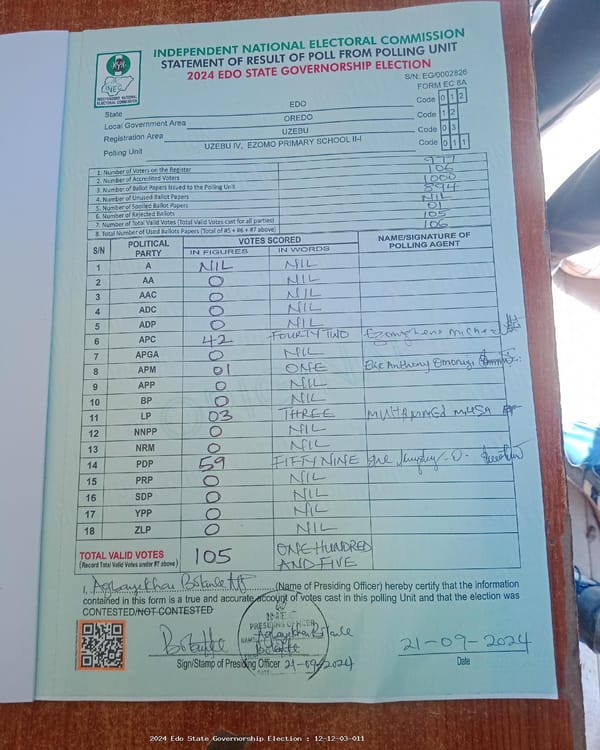 INDEPENDENT NATIONAL ELECTORAL COMMISSION
STATEMENT OF RESULT OF POLL FROM POLLING UNIT
2024 EDO STATE GOVERNORSHIP ELECTION
S/N: EG/0002826
FORM EC 8A
INEC
INDEPENDENT NATIONAL ELECTORAL COMMISSION
State EDO Code 0 1 2
Local Government Area OREDO Code 1 2
Registration Area UZEBU Code 0 3
Polling Unit UZEBU IV, EZOMO PRIMARY SCHOOL II-I Code 0 1 1
1. Number of Voters on the Register 977
2. Number of Accredited Voters 106
3. Number of Ballot Papers Issued to the Polling Unit 1000
4. Number of Unused Ballot Papers 894
5. Number of Spoiled Ballot Papers NIL
6. Number of Rejected Ballots 01
7. Number of Total Valid Votes (Total Valid Votes cast for all parties) 105
8. Total Number of Used Ballots Papers (Total of #5 + #6 + #7 above) 106
S/N POLITICAL PARTY VOTES SCORED NAME/SIGNATURE OF POLLING AGENT
IN FIGURES IN WORDS
1 A NIL NIL
2 AA 0 NIL
3 AAC 0 NIL
4 ADC 0 NIL
5 ADP 0 NIL
6 APC 42 FOURTY TWO
7 APGA 0 NIL
8 APM 01 ONE Anthony
9 APP 0 NIL
10 BP 0 NIL
11 LP 03 THREE MUHAMMED MUSA
12 NNPP 0 NIL
13 NRM 0 NIL
14 PDP 59 FIFTY NINE
15 PRP 0 NIL
16 SDP 0 NIL
17 YPP 0 NIL
18 ZLP 0 NIL
TOTAL VALID VOTES 105 ONE HUNDRED AND FIVE
(Record Total Valid Votes under #7 above)
I, (Name of Presiding Officer) hereby certify that the information
contained in this form is a true and accurate account of votes cast in this polling Unit and that the election was
CONTESTED/NOT CONTESTED
INEC
PRESIDING OFFICER
21-09-2024
Sign/Stamp of Presiding Officer 21-09-2024 Date
2024 Edo State Governorship Election : 12-12-03-011